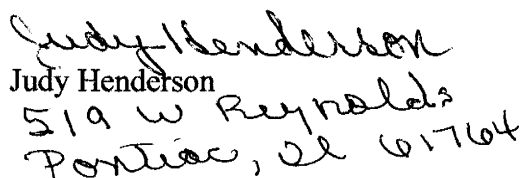 Judy Henderson
Judy Henderson
519 W Reynolds
Pontiac, Il 61764